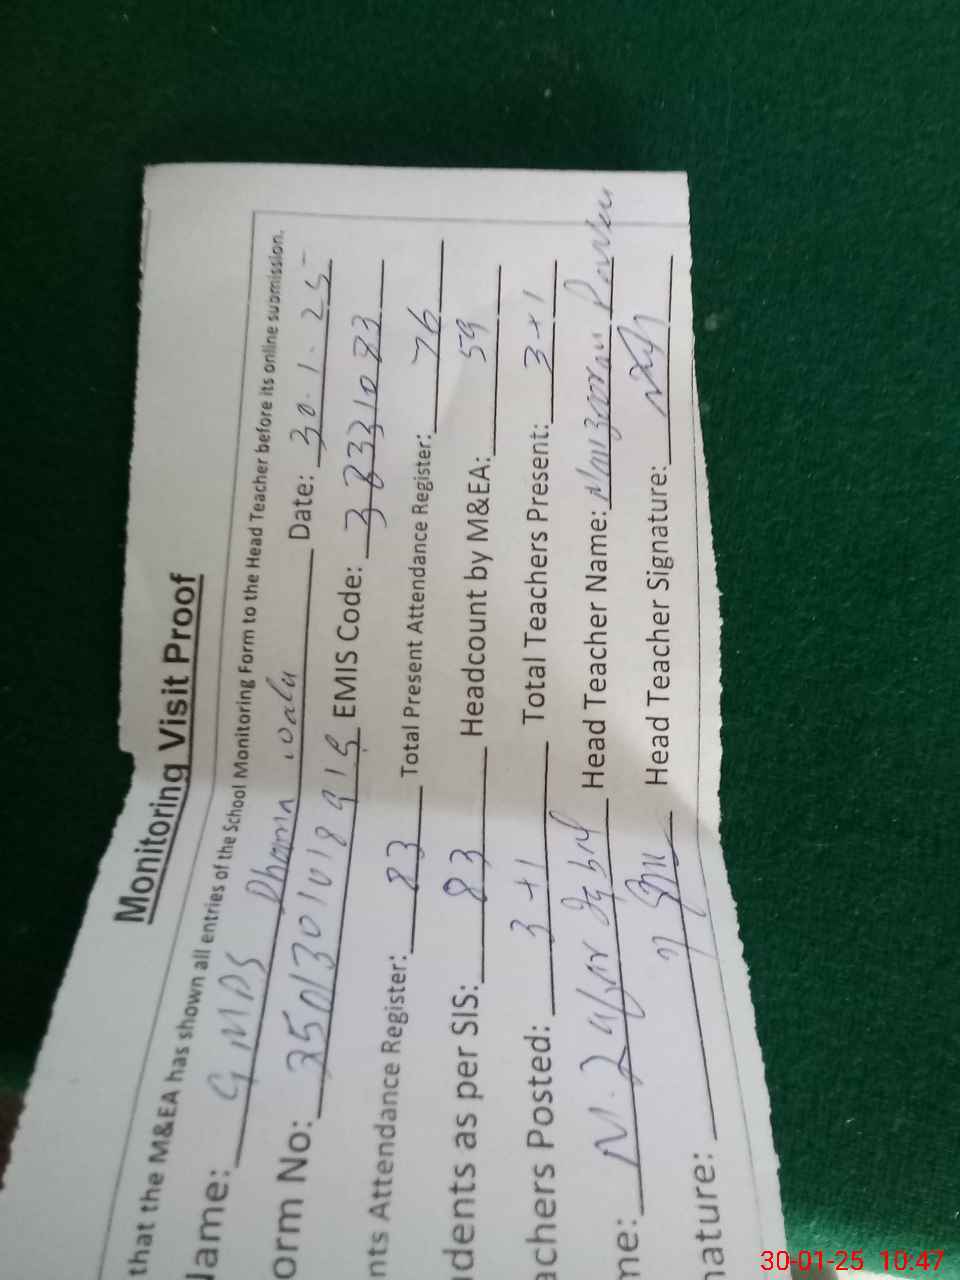 Monitoring Visit Proof
that the M&EA has shown all entries of the School Monitoring Form to the Head Teacher before its online submission.
Name: GMPS Dhamna Date: 30.1.25
orm No: EMIS Code:
nts Attendance Register: 83 Total Present Attendance Register: 76
udents as per SIS: 83 Headcount by M&EA: 59
achers Posted: 3+1 Total Teachers Present: 3+1
me: M. Head Teacher Name:
nature: Head Teacher Signature:
30-01-25 10:47